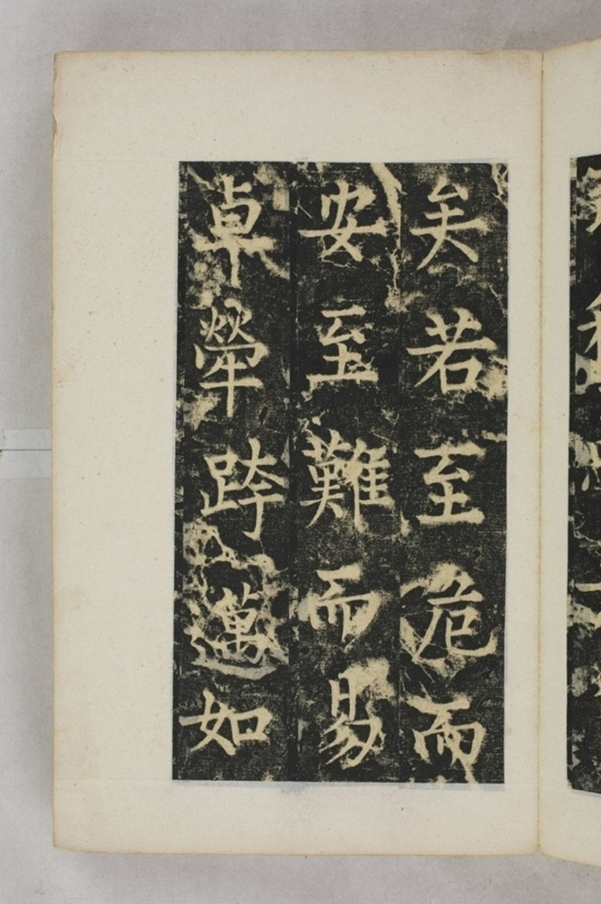 矣若至危而
安至難而易
卓犖跨邁如